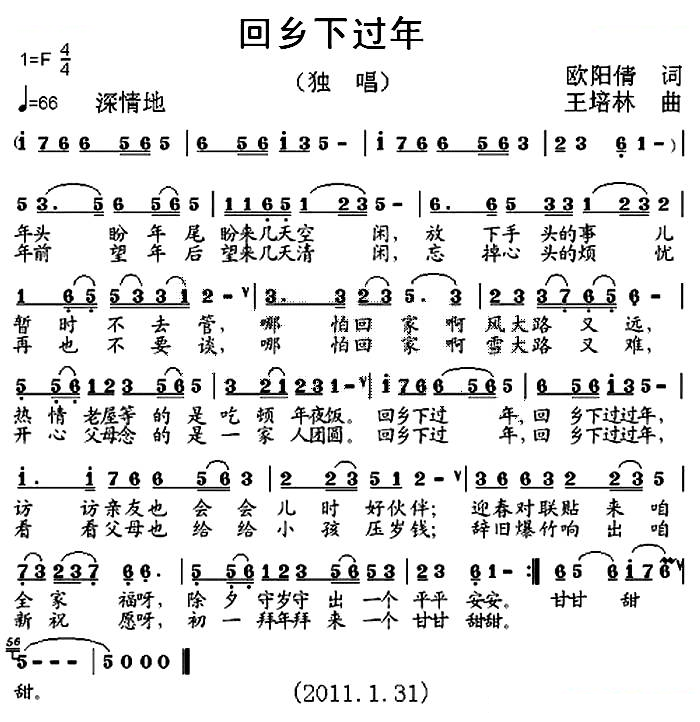 回乡下过年
1=F 4/4
(独 唱)
欧阳倩 词
♩=66 深情地
王培林 曲
(i 7 6 6 5 6 5 | 6 5 6 i 3 5 - | i 7 6 6 5 6 3 | 2 3 6 1 - )|
5 3. 5 6 5 6 5 | 1 1 6 5 1 2 3 5 - | 6. 6 5 3 3 3 1 2 3 2 |
年头 盼 年 尾 盼来几天空 闲, 放 下手 头的事 儿
年前 望 年 后 望来几天清 闲, 忘 掉心 头的烦 忧
1 6 5 5 3 3 1 2 - | 3. 3 2 3 5. 3 | 2 2 3 3 7 6 5 6 - |
暂 时 不 去 管, 哪 怕回 家 啊 风大路 又 远,
再 也 不 要 谈, 哪 怕回 家 啊 雪大路 又 难,
5 5 6 1 2 3 5 6 5 | 3 2 1 2 3 1 - | i 7 6 6 5 6 5 | 6 5 6 i 3 5 - |
热 情 老屋等 的 是 吃 顿 年夜饭。 回乡下过 年, 回 乡下过过年,
开 心 父母念 的 是 一 家 人团圆。 回乡下过 年, 回 乡下过过年,
i. i 7 6 6 5 6 3 | 2 2 3 5 1 2 - | 3 6 3 6 3 2 2 3 5 |
访 访亲友也 会 会 儿 时 好伙伴; 迎春对联贴 来 咱
看 看父母也 给 给 小 孩 压岁钱; 辞旧爆竹响 出 咱
7 3 2 3 7 6 6. | 5 5 6 1 2 3 1 6 5 3 | 2 3 6 1 - :| 6 5 i 7 6
全 家 福呀, 除 夕 守岁守 出 一个 平平 安安。 甘甘 甜
新 祝 愿呀, 初 一 拜年拜 来 一个 甘甘 甜甜。
56
5 - - - | 5 0 0 0 ‖
甜。
(2011.1.31)